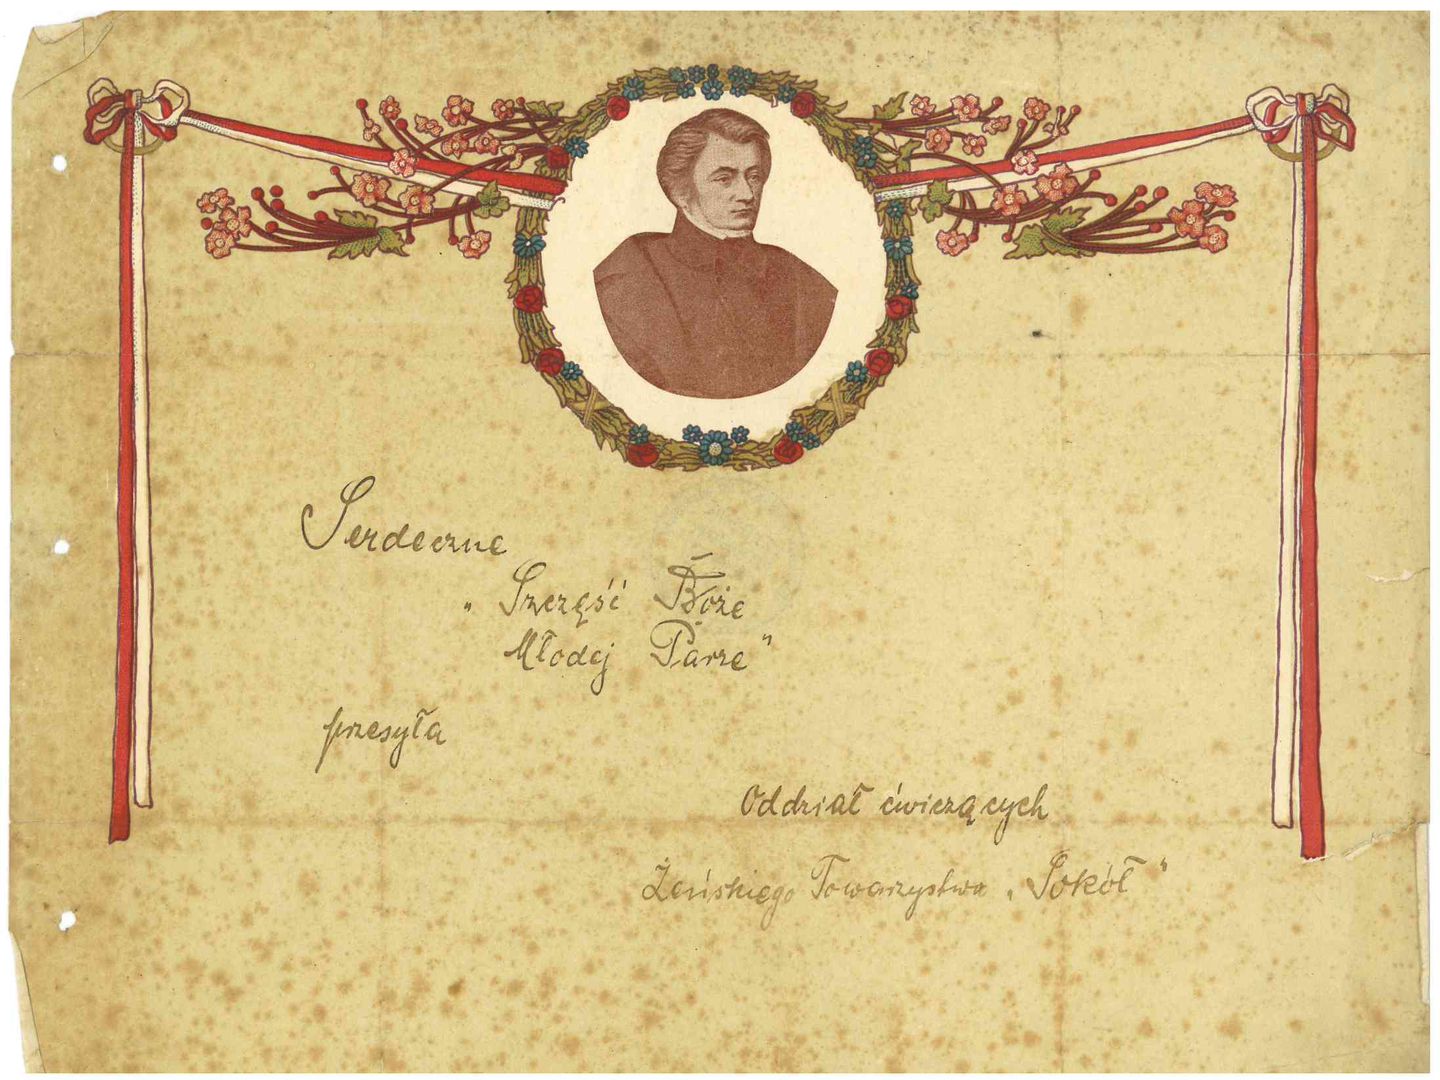 Serdeczne
„Szczęść Boże
Młodej Parze"
przesyła
Oddział ćwiczących
Żeńskiego Towarzystwa „Sokół"